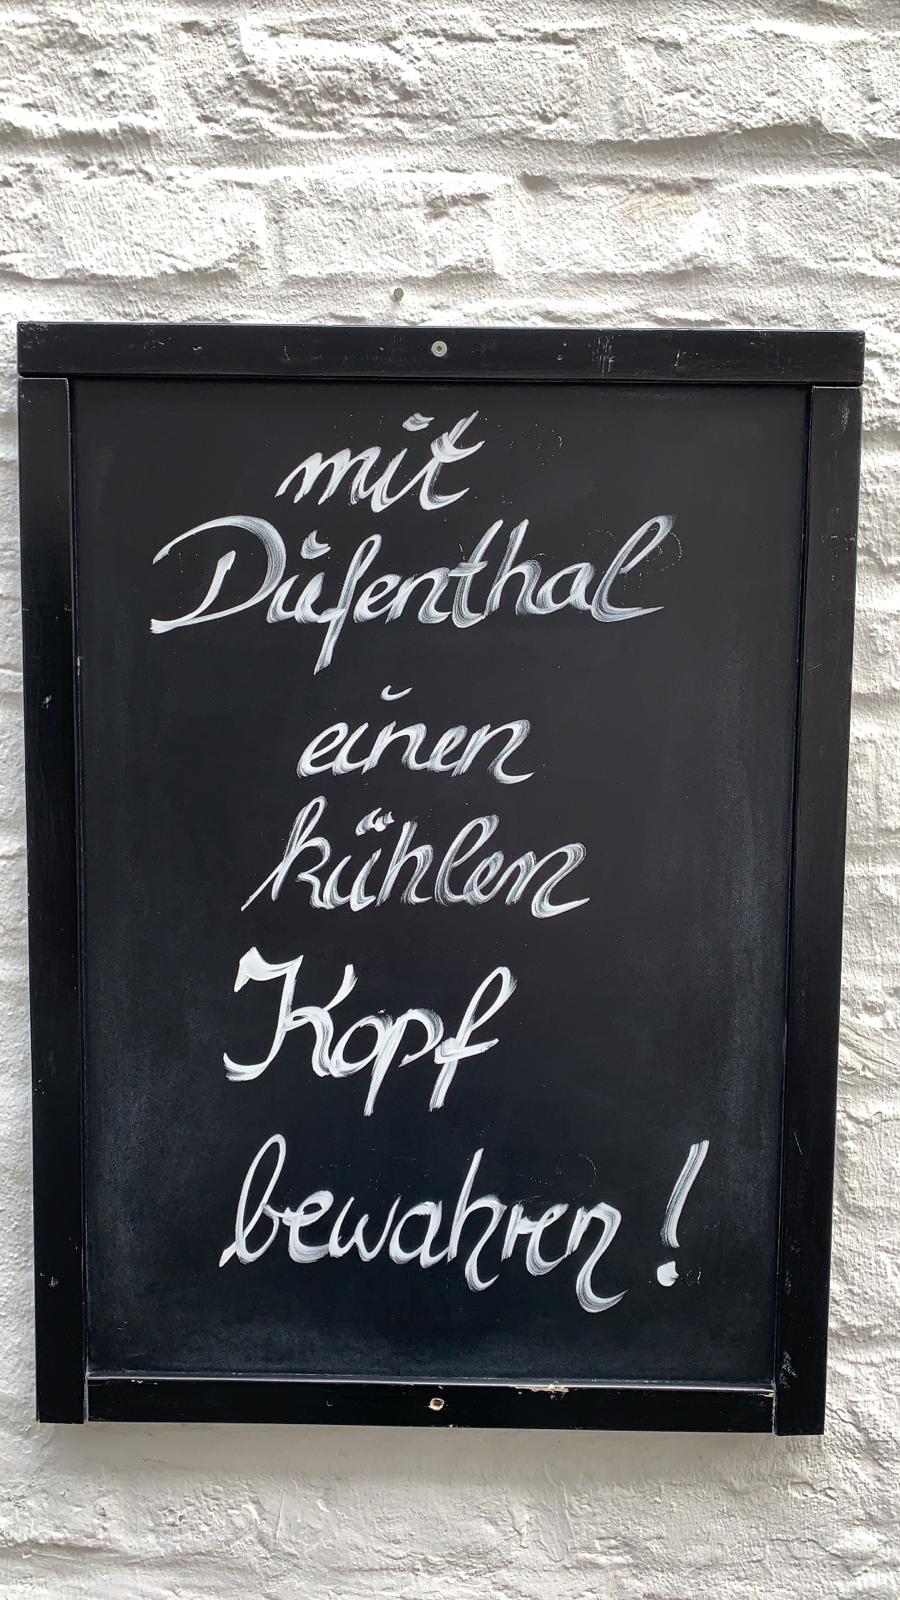 mit
Düfenthal
einen
kühlen
Kopf
bewahren!